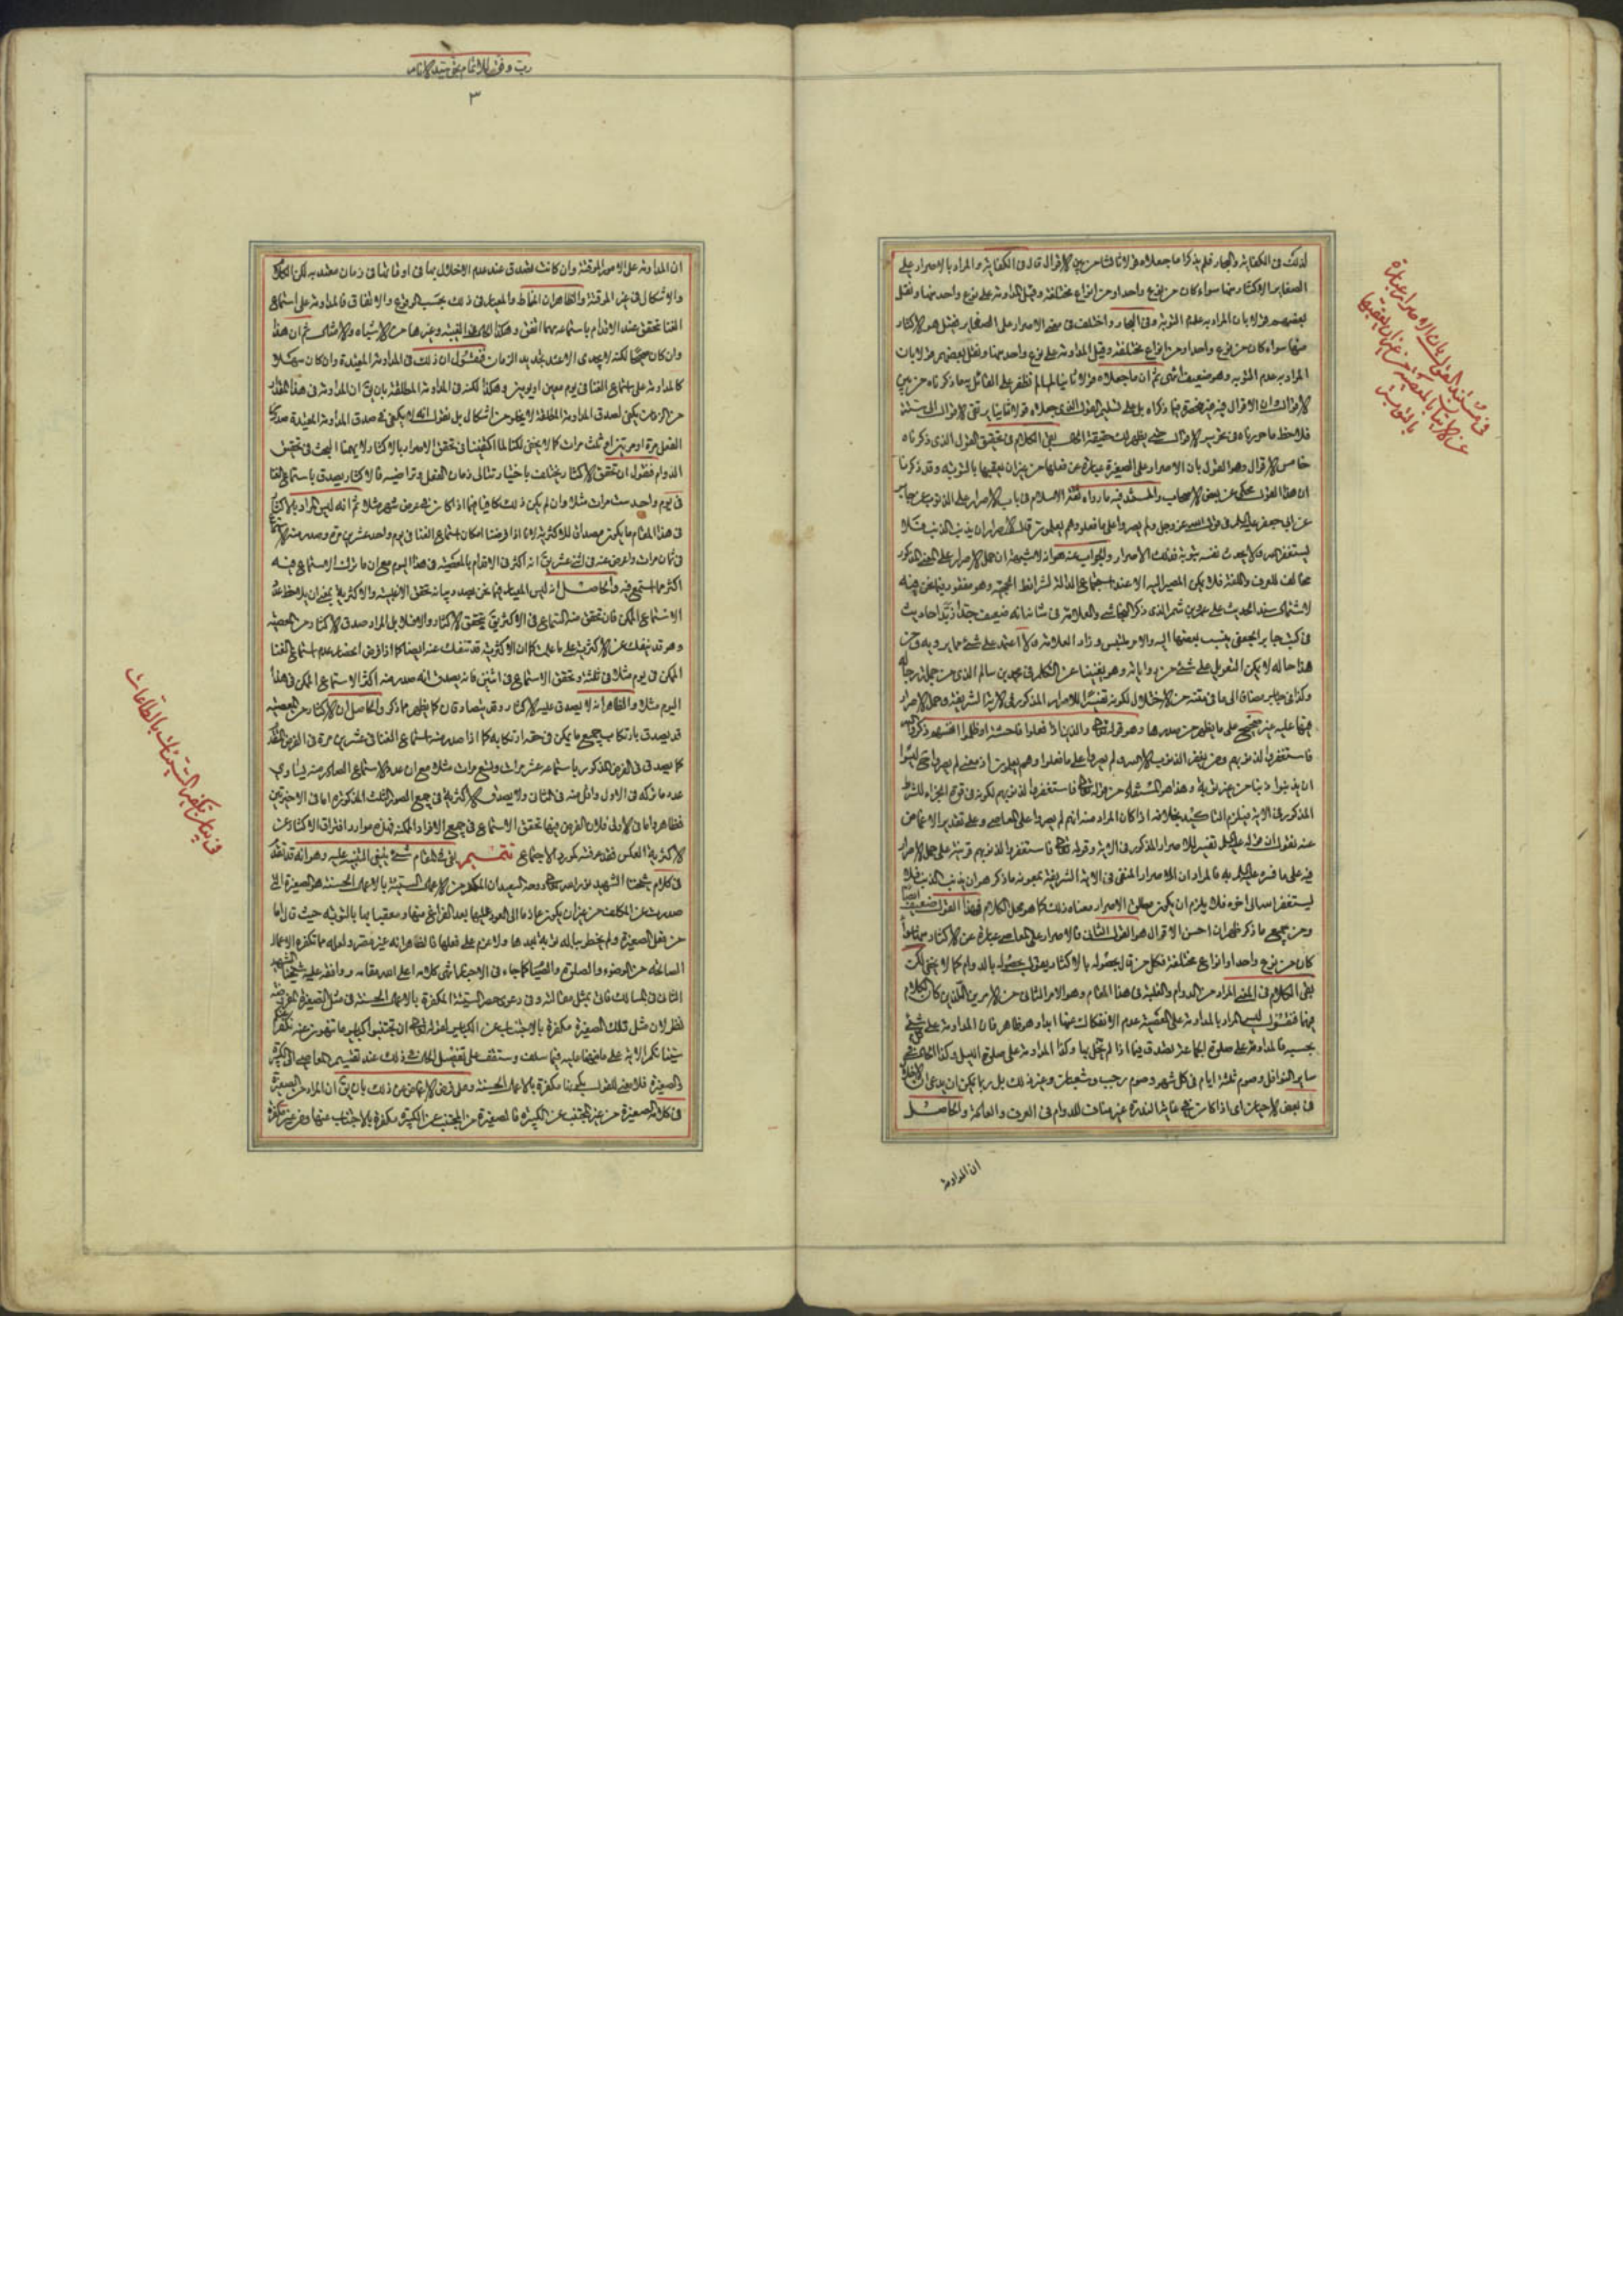 لذلك في الكفاية والبحار فلم يذكرا ما جعلاه قولا ثالثا من بين الاقوال قال في الكفاية والمراد بالاصرار على
الصغاير الاكثار منها سواء كان من نوع واحد او من انواع مختلفة وقيل المداومة على نوع واحد منها ونقل
بعضهم قولا بان المراد به عدم التوبة وفي البحار واختلف في معنى الاصرار على الصغاير فقيل هو الاكثار
منها سواء كان من نوع واحد او من انواع مختلفة وقيل المداومة على نوع واحد منها ونقل بعضهم قولا بان
المراد به عدم التوبة وهو ضعيف انتهى ثم ان ما جعلاه قولا ثانيا لم نظفر على القائل به ما ذكرناه من بين
الاقوال
فلاحظ ما حررناه في تحرير الاقوال حتى يظهر لك حقيقة الحال بقي الكلام في تحقيق القول الذي ذكرناه
خامس الاقوال وهو القول بان الاصرار على الصغيرة عبارة عن فعلها من غير ان يعقبها بالتوبة وقد ذكرنا
ان هذا القول محكي عن بعض الاصحاب والمستند فيه ما رواه ثقة الاسلام في باب الاصرار على الذنوب عن جابر
عن ابي جعفر عليه السلام في قول الله عز وجل ولم يصروا على ما فعلوا وهم يعلمون قال الاصرار ان يذنب الذنب فلا
يستغفر الله ولا يحدث نفسه بتوبة فذلك الاصرار والجواب عنه هو انه لا شبهة ان حمل الاصرار على المعنى المذكور
مخالف للعرف واللغة فلا يمكن المصير اليه الا عند اجتماع الدلالة لشرائط الحجية وهو مفقود فيما نحن فيه
لاشتمال سند الحديث على عمرو بن شمر الذي ذكر النجاشي والعلامة في شانه انه ضعيف جدا زيد احاديث
في كتب جابر الجعفي ينسب بعضها اليه والامر ملتبس وزاد العلامة فلا اعتمد على شيء مما يرويه ومن
هذا حاله لا يمكن التعويل على شيء من رواياته وهو يغنينا عن التكلم في محمد بن سالم الذي من جملة رجاله
وكذا في جابر مضافا الى ما في متنه من الاختلال لكونه تفسيرا للاصرار المذكور في الاية الشريفة وحمل الاصرار
فيها عليه غير صحيح على ما يظهر من صدرها وهو قوله تعالى والذين اذا فعلوا فاحشة او ظلموا انفسهم ذكروا الله
فاستغفروا لذنوبهم ومن يغفر الذنوب الا الله ولم يصروا على ما فعلوا وهم يعلمون اذ معنى لم يصروا
المذكور في الاية فيلزم التاكيد بخلافه اذا كان المراد منه انهم لم يصروا على المعاصي وعلى تقدير الاغماض
عنه نقول ان قوله عليه السلام تفسير للاصرار المذكور في الاية وقوله تعالى فاستغفروا لذنوبهم قرينة على حمل الاصرار
فيه على ما فسره عليه السلام به فالمراد ان الاصرار المنفي في الاية الشريفة بمعونة ما ذكر هو ان يذنب الذنب فلا
يستغفر الله الى اخره فلا يلزم ان يكون مطلق الاصرار معناه ذلك كما هو محل الكلام فهذا القول ضعيف ايضا
ومن جميع ما ذكر ظهر ان احسن الاقوال هو القول الثاني فالاصرار على المعاصي عبارة عن الاكثار منها سواء
كان من نوع واحد او انواع مختلفة فكل من قال بحصوله بالاكثار يقول بحصوله بالدوام كما لا يخفى لكن
بقي الكلام في المعنى المراد من الدوام والغلبة في هذا المقام وهو الامر الثاني من الامرين اللذين كان الكلام
فيهما فنقول ليس المراد بالمداومة على المعصية عدم الانفكاك عنها ابدا وهو ظاهر فان المداومة على شيء
بحسبه فالمداومة على صلوة الجماعة تصدق فيما اذا لم يخل بها وكذا المداومة على صلوة الليل وكذا الحال في
ساير النوافل وصوم ثلثة ايام في كل شهر وصوم رجب وشعبان وغير ذلك بل ربما يمكن ان يدعى ان الاخلال
في بعض الاحيان اي اذا كان في غاية الندرة غير مناف للدوام في العرف والعادة والحاصل
ان المداومة
في مستند القول بان الاصرار عبارة
عن الاتيان بالمعصية من غير ان يعقبها
بالتوبة
رب وفقني للاتمام بحق سيد الانام
٣
ان المداومة على الامور الموقتة وان كانت تصدق عند عدم الاخلال بها في اوقاتها في زمان معتد به لكن الكلام
والاشكال في غير الموقتة والظاهر ان المناط والمعيار في ذلك بحسب الوقوع والاتفاق فالمداومة على استماع
الغنا تحقق عند الاقدام باستماعه مهما اتفق وهكذا الكلام في الغيبة وغيرها من الاشباه والامثال ثم ان هذا
وان كان صحيحا لكنه لا يجدي الا عند تحديد الزمان فنقول ان ذلك في المداومة المقيدة وان كان سهلا
كالمداومة على استماع الغنا في يوم معين او يومين وهكذا لكنه في المداومة المطلقة بان يق ان المداومة في هذا المقدار
من الزمان يكفي لصدق المداومة المطلقة لا يخلو من اشكال بل نقول انه لا يكفي في صدق المداومة المقيدة صدور
الفعل مرة او مرتين او ثلث مرات كما لا يخفى لكنا لما اكتفينا في تحقق الاصرار بالاكثار لا يهمنا البحث في تحقيق
الدوام فنقول ان تحقق الاكثار يختلف باختيار توالي زمان الفعل وتراخيه فالاكثار يصدق باستماع الغنا
في يوم واحد ست مرات مثلا وان لم يكن ذلك كافيا فيما اذا كان في عرض شهر مثلا ثم انه ليس المراد بالاكثار
في هذا المقام ما يكون مصداق للاكثرية لانا اذا فرضنا امكان استماع الغنا في يوم واحد عشرين مرة وصدر منه الاستماع
في ثمان مرات واعرض عنه في اثني عشر يق انه اكثر في الاقدام بالمعصية في هذا اليوم مع ان ما ترك الاستماع فيه
اكثر مما استمع فيه والحاصل انه ليس المعيار فيما نحن بصدد بيانه تحقق الاغلبية والاكثرية بمعنى ان يلاحظ عدد
الاستماع الممكن فان تحقق منه السماع في الاكثر يق تحقق الاكثار والا فلا بل المراد صدق الاكثار من المعصية
وهو قد ينفك عن الاكثرية على ما علمت كما ان الاكثرية قد تنفك عنه ايضا كما اذا فرض انحصار عدد استماع الغنا
الممكن في يوم مثلا في ثلثة وتحقق الاستماع في اثنين فانه يصدق انه صدر منه اكثر الاستماع الممكن في هذا
اليوم مثلا والظاهر انه لا يصدق عليه الاكثار وقد يتصادقان كما يظهر مما ذكر والحاصل ان الاكثار من المعصية
قد يصدق بارتكاب جميع ما يمكن في حقه ارتكابه كما اذا صدر منه استماع الغنا في عشرين مرة في الفرض المذكور
كما يصدق في الفرض المذكور باستماعه عشر مرات وتسع مرات مثلا مع ان عدد الاستماع الصادر منه يساوي
عدد ما تركه في الاول واقل منه في الثاني ولا يصدق الاكثرية في جميع الصور الثلث المذكورة اما في الاخيرتين
فظاهر واما في الاولى فلان الفرض فيها تحقق الاستماع في جميع الافراد الممكنة فهذه موارد افتراق الاكثار عن
الاكثرية والعكس فقد عرفته كمورد الاجتماع تتميم بقي في المقام شيء ينبغي التنبيه عليه وهو انه قد اتفق
في كلام شيخنا الشهيد نور الله تعالى روحه السعيد ان المكفر من الاعمال السيئة بالاعمال الحسنة هو الصغيرة التي
صدرت عن المكلف من غير ان يكون عازما الى العود عليها بعد الفراغ منها ومعقبا بها بالتوبة حيث قال اما
من فعل الصغيرة ولم يخطر بباله توبة بعدها ولا عزم على فعلها فالظاهر انه غير مصر ولعله مما تكفره الاعمال
الصالحة من الوضوء والصلوة والصيام كما جاء في الاخبار انتهى كلامه اعلى الله مقامه ووافقه عليه شيخنا الشهيد
الثاني في المسالك فاتى بمثل مقالته وفي دعوى حصر السيئة المكفرة بالاعمال الحسنة في مثل الصغيرة
نظر لان مثل تلك الصغيرة مكفرة بالاجتناب عن الكباير لقوله تعالى ان تجتنبوا كباير ما تنهون عنه نكفر عنكم
سيئاتكم الاية على ما نبهنا عليه فيما سلف وستقف على تفصيل الحال في ذلك عند تقسيم المعاصي الى الكبيرة
والصغيرة فلا معنى للقول بكونها مكفرة بالاعمال الحسنة وعلى فرض الاغماض عن ذلك بان يق ان المراد من الصغيرة
في كلامه الصغيرة من غير المجتنب عن الكبيرة فالصغيرة من المجتنب عن الكبيرة مكفرة بالاجتناب عنها ومن غيره مكفرة
في بيان تكفير السيئات بالطاعات